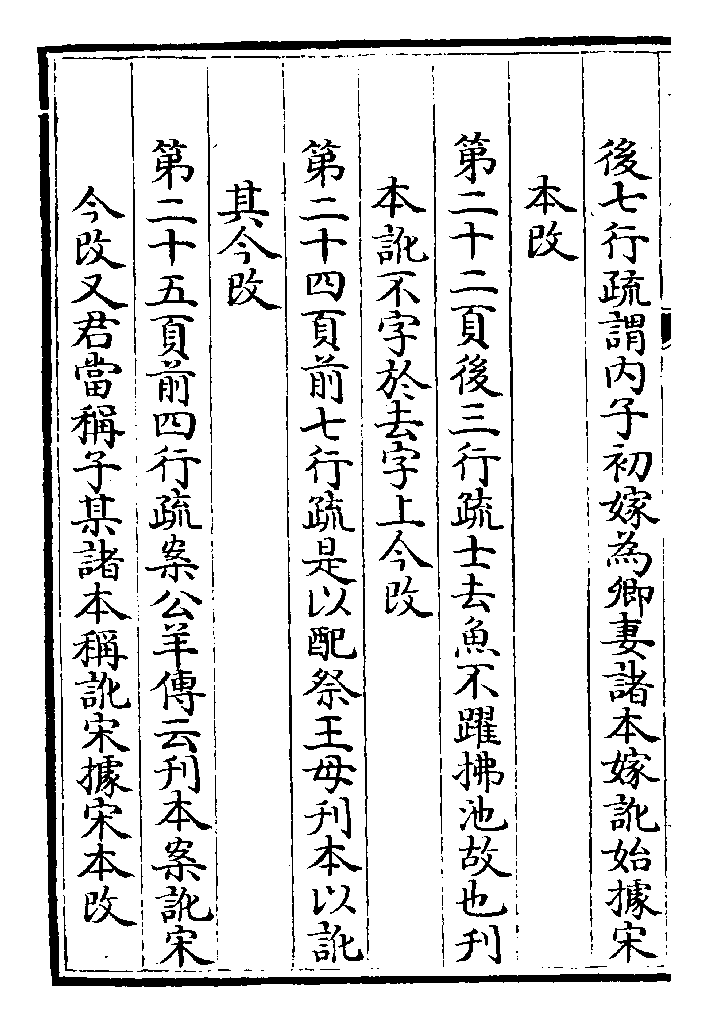 後七行疏謂内子初嫁為卿妻諸本嫁訛始據宋
本改
第二十二頁後三行疏士去魚不躍拂池故也刋
本訛不字於去字上今改
第二十四頁前七行疏是以配祭王母刋本以訛
其今改
第二十五頁前四行疏案公羊傳云刋本案訛宋
今改又君當稱子某諸本稱訛宋據宋本改